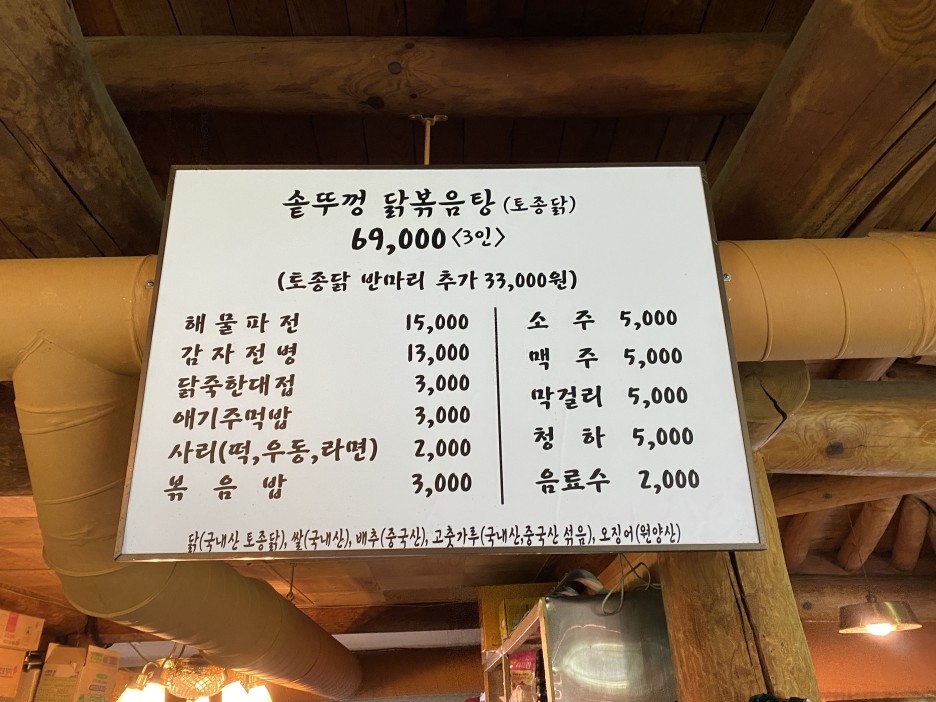 솥뚜껑 닭볶음탕 (토종닭)
69,000 <3인>
(토종닭 반마리 추가 33,000원)
해물파전 15,000
감자전병 13,000
닭죽한대접 3,000
애기주먹밥 3,000
사리(떡,우동,라면) 2,000
볶음밥 3,000
소주 5,000
맥주 5,000
막걸리 5,000
청하 5,000
음료수 2,000
닭(국내산 토종닭), 쌀(국내산), 배추(중국산), 고춧가루(국내산,중국산 섞음), 오징어(원양산)